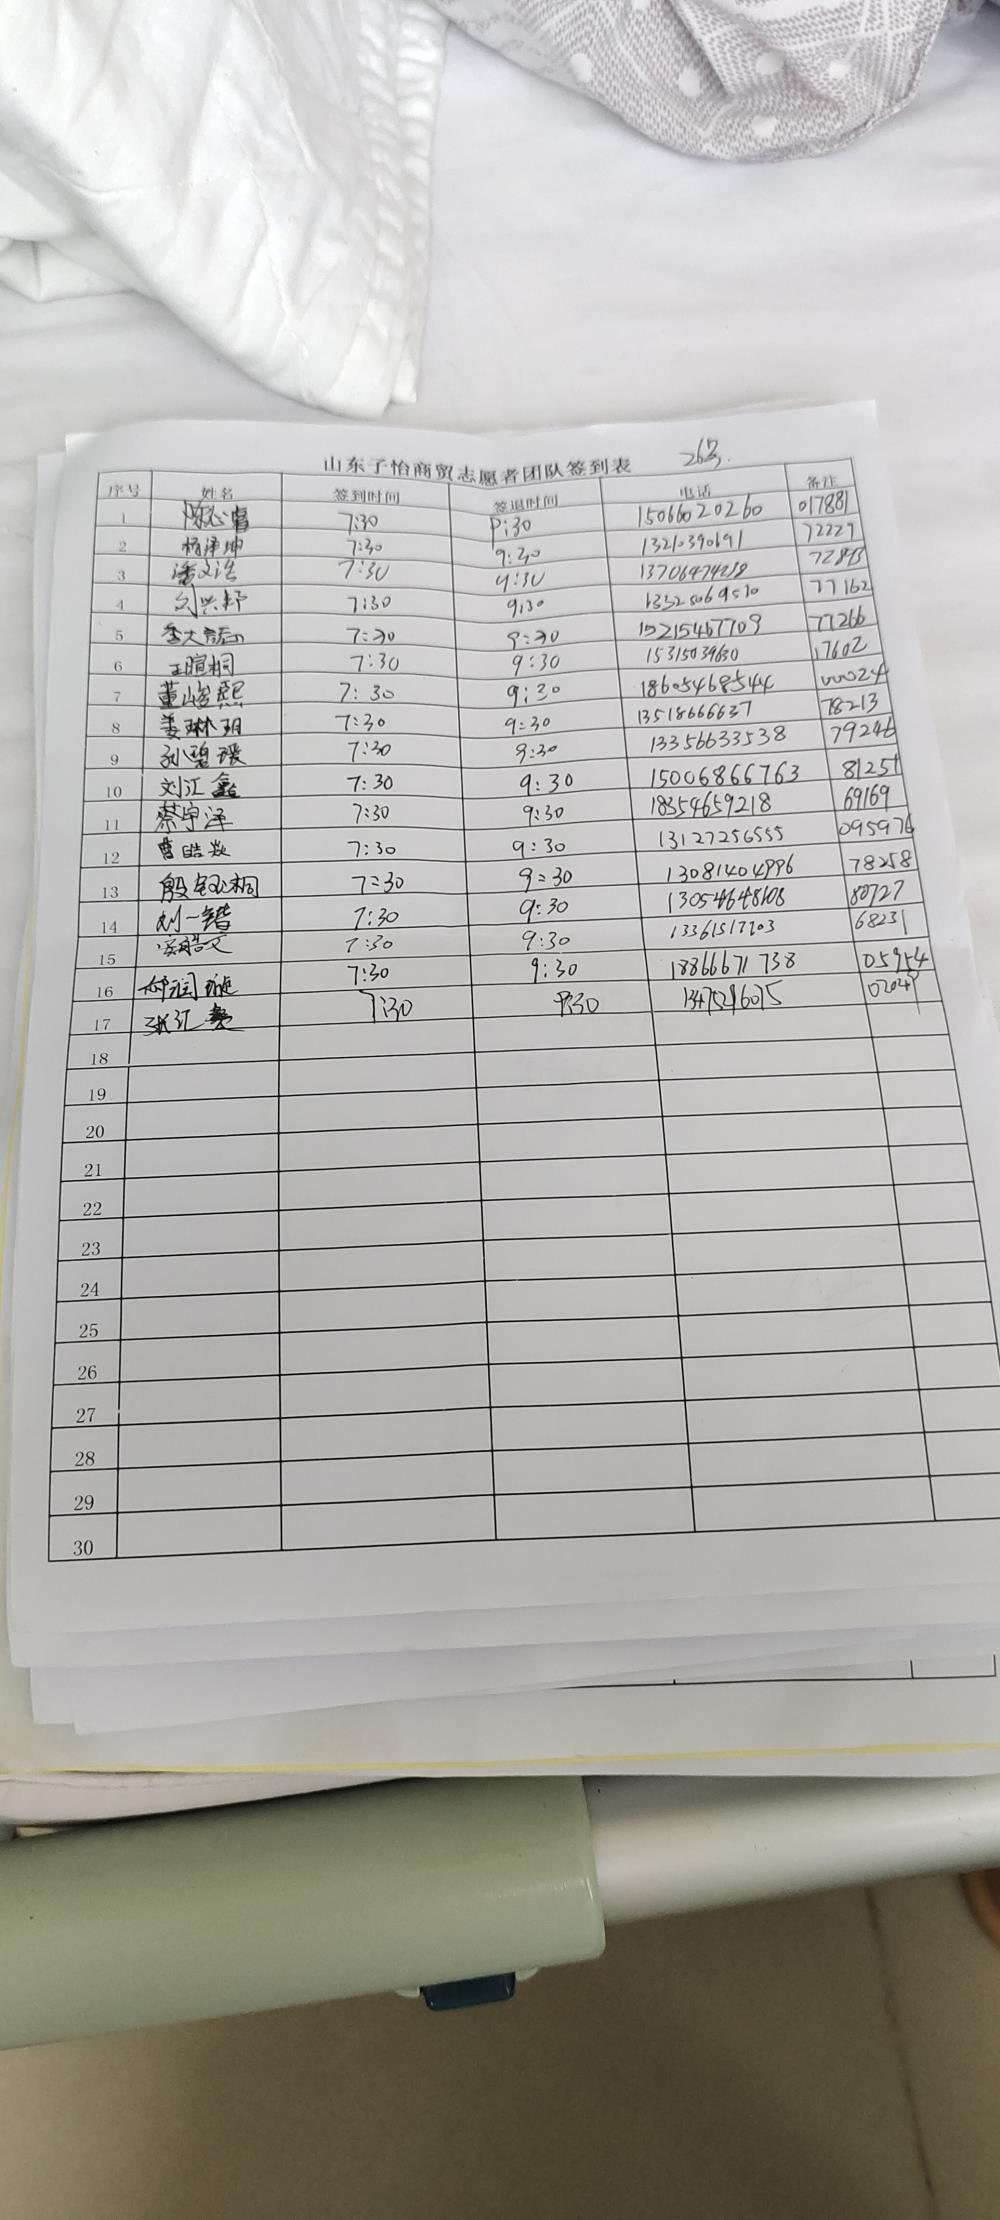 山东子怡商贸志愿者团队签到表 26号.
序号 姓名 签到时间 签退时间 电话 备注
1 陈心睿 7:30 9:30 15066020260 017881
2 杨泽坤 7:30 9:30 13210390691 72227
3 潘文浩 7:30 9:30 13706474218
4 刘兴舒 7:30 9:30 13325069510 77162
5 7:30 9:30 15215467709 77266
6 王暄桐 7:30 9:30 15315039630 17602
7 董峻熙 7:30 9:30 18605468544 00024
8 姜琳玥 7:30 9:30 13518666637 78213
9 孙碧瑗 7:30 9:30 13356633538 79246
10 刘江鑫 7:30 9:30 15006866763 81251
11 蔡宇泽 7:30 9:30 18354659218 69169
12 曹皓焱 7:30 9:30 13127256555 095976
13 殷钰桐 7:30 9:30 13081404996 78258
14 刘一锴 7:30 9:30 13054648108 80727
15 7:30 9:30 13361517703 68231
16 7:30 9:30 18866671738 05954
17 张汇 7:30 9:30 13475216015 02049
18
19
20
21
22
23
24
25
26
27
28
29
30